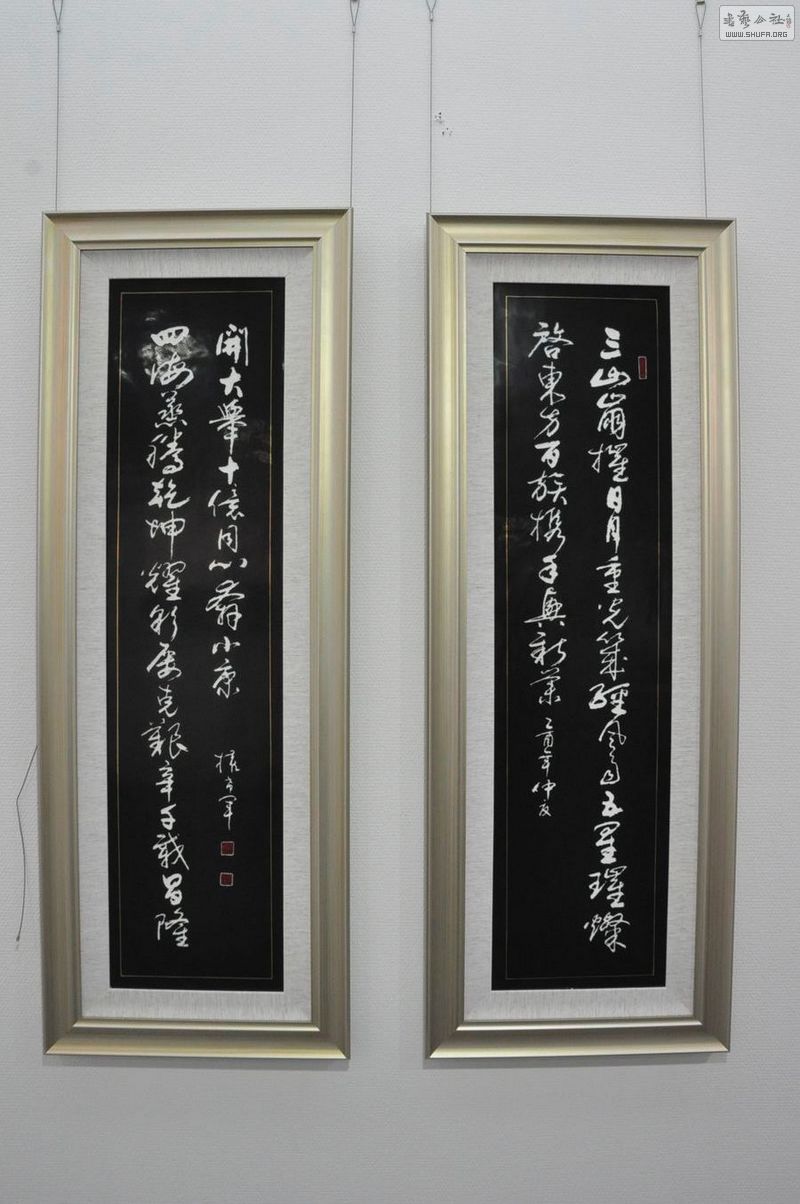 書藝公社
WWW.SHUFA.ORG
三山崩摧日月重光幾經風雨五星璀燦
啓東方百族携手興新業 乙酉年仲夏
四海蒸騰乾坤耀彩屢克艱辛千載昌隆
開大舉十億同心奔小康